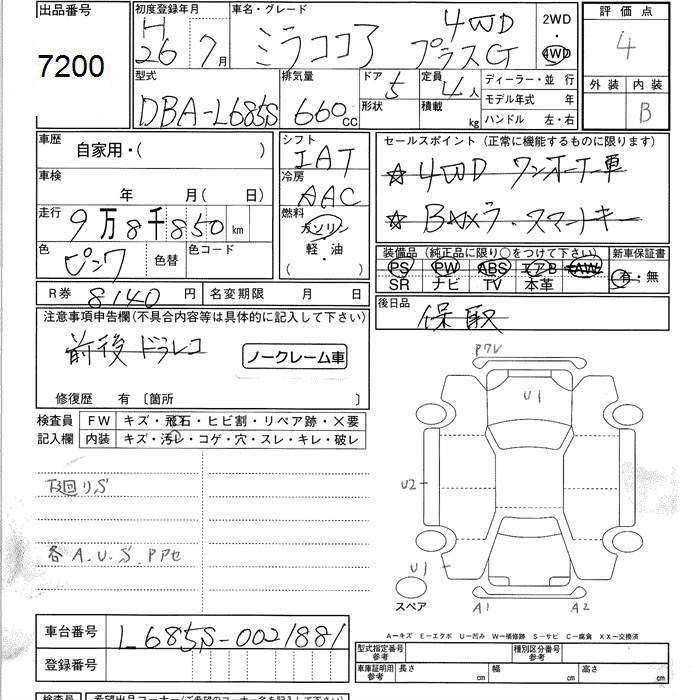 出品番号 初度登録年月 車名・グレード 評価点
7200 H 26 7月 ミラココア 4WD プラスG 2WD・4WD 4
型式 排気量 ドア 定員 ディーラー・並 行 外装 内装
DBA-L685S 660cc 5 4人 モデル年式 年 B
形状 積載 kg ハンドル 左・右
車歴 自家用・( ) シフト IAT セールスポイント(正常に機能するものに限ります)
車検 年 月( 日) 冷房 AAC ☆4WD ワンオーナー車
走行 9万8千850km 燃料 ガソリン 軽・油 ( ) ☆ スマートキー
色 ピンク 色替 色コード 装備品(純正品に限り○をつけて下さい) 新車保証書
PS PW ABS エアB AW 有・無
SR ナビ TV 本革
R券 8140円 名変期限 月 日 後日品 保 取
注意事項申告欄(不具合内容等は具体的に記入して下さい)
前後 ドラレコ ノークレーム車
修復歴 有 〔箇所 〕
検査員 FW キズ・飛石・ヒビ割・リペア跡・×要
記入欄 内装 キズ・汚レ・コゲ・穴・スレ・キレ・破レ
下回りS
各A.U.S.Pアセ
PアV
U1
U2
U1
スペア A1 A2
A-キズ E-エクボ U-凹み W-補修跡 S-サビ C-腐食 XX-交換済
車台番号 L685S-0021881
型式指定番号 参考 種別区分番号 参考
登録番号 車庫証明用 参考 長さ cm 幅 cm 高さ cm
検査員 希望出品コーナー(ご希望のコーナー名を記入して下さい)